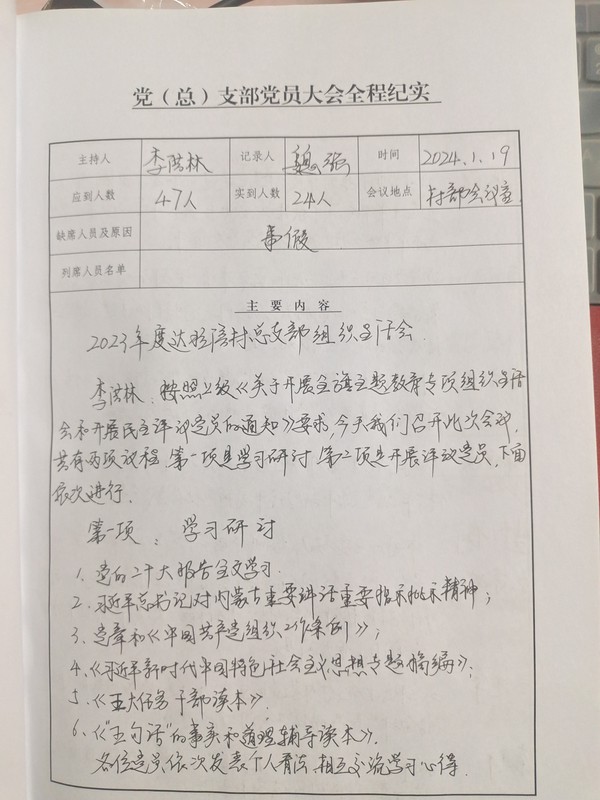 党（总）支部党员大会全程纪实
主持人 李洪林 记录人 魏强 时间 2024.1.19
应到人数 47人 实到人数 24人 会议地点 村部会议室
缺席人员及原因 事假
列席人员名单
主要内容
2023年度达 村总支部组织生活会.
李洪林：按照上级《关于开展全旗主题教育专项组织生活
会和开展民主评议党员的通知》要求,今天我们召开此次会议,
共有两项议程,第一项是学习研讨,第二项是开展评议党员,下面
依次进行.
第一项：学习研讨
1、党的二十大报告全文学习.
2、习近平总书记对内蒙古重要讲话重要指示批示精神；
3、党章和《中国共产党组织工作条例》；
4、《习近平新时代中国特色社会主义思想专题摘编》；
5、《五大任务干部读本》.
6、《“五句话”的事实和道理辅导读本》.
各位党员依次发表个人看法,相互交流学习心得.